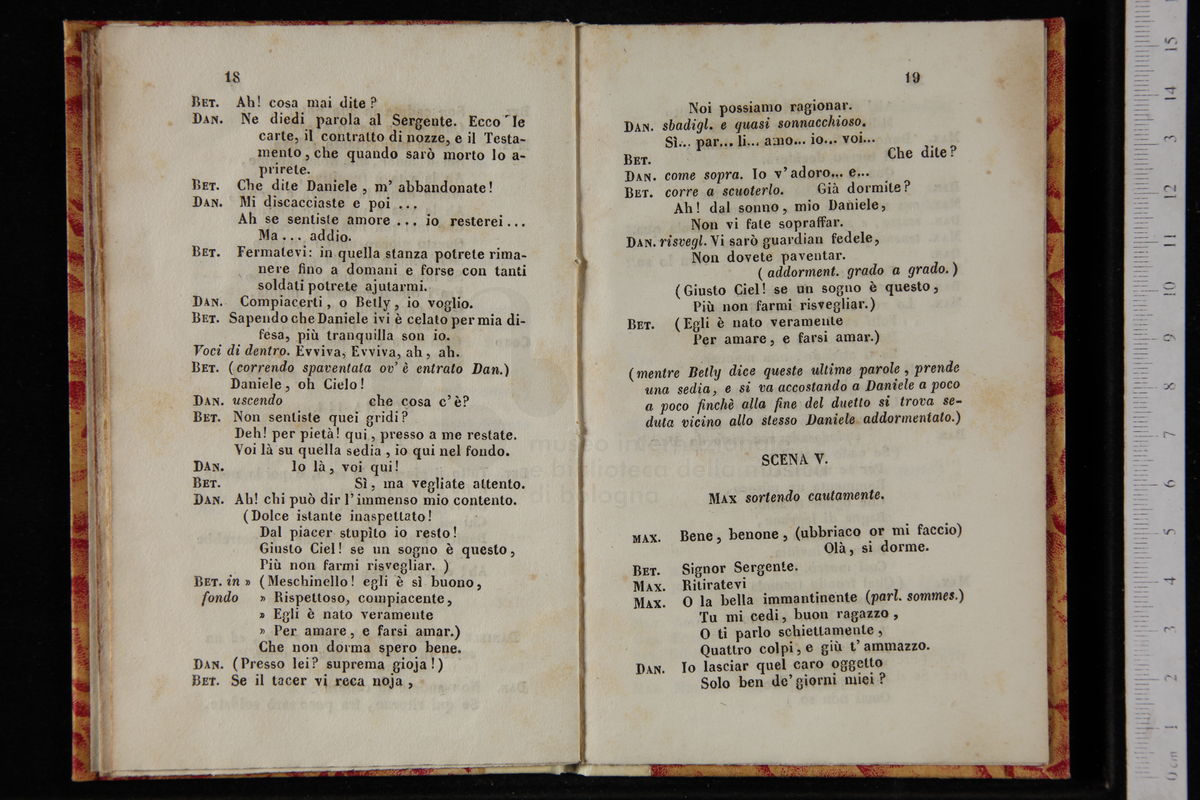 18
BET. Ah! cosa mai dite?
DAN. Ne diedi parola al Sergente. Ecco le
carte, il contratto di nozze, e il Testa-
mento, che quando sarò morto lo a-
prirete.
BET. Che dite Daniele, m' abbandonate!
DAN. Mi discacciaste e poi ...
Ah se sentiste amore ... io resterei...
Ma... addio.
BET. Fermatevi: in quella stanza potrete rima-
nere fino a domani e forse con tanti
soldati potrete ajutarmi.
DAN. Compiacerti, o Betly, io voglio.
BET. Sapendo che Daniele ivi è celato per mia di-
fesa, più tranquilla son io.
Voci di dentro. Evviva, Evviva, ah, ah.
BET. (correndo spaventata ov' è entrato Dan.)
Daniele, oh Cielo!
DAN. uscendo che cosa c'è?
BET. Non sentiste quei gridi?
Deh! per pietà! qui, presso a me restate.
Voi là su quella sedia, io qui nel fondo.
DAN. Io là, voi qui!
BET. Sì, ma vegliate attento.
DAN. Ah! chi può dir l'immenso mio contento.
(Dolce istante inaspettato!
Dal piacer stupìto io resto!
Giusto Ciel! se un sogno è questo,
Più non farmi risvegliar. )
BET. in » (Meschinello! egli è sì buono,
fondo » Rispettoso, compiacente,
» Egli è nato veramente
» Per amare, e farsi amar.)
Che non dorma spero bene.
DAN. (Presso lei? suprema gioja!)
BET. Se il tacer vi reca noja,
19
Noi possiamo ragionar.
DAN. sbadigl. e quasi sonnacchioso.
Sì... par... li... amo... io... voi...
BET. Che dite?
DAN. come sopra. Io v'adoro... e...
BET. corre a scuoterlo. Già dormite?
Ah! dal sonno, mio Daniele,
Non vi fate sopraffar.
DAN. risvegl. Vi sarò guardian fedele,
Non dovete paventar.
(addorment. grado a grado.)
(Giusto Ciel! se un sogno è questo,
Più non farmi risvegliar.)
BET. (Egli è nato veramente
Per amare, e farsi amar.)
(mentre Betly dice queste ultime parole, prende
una sedia, e si va accostando a Daniele a poco
a poco finchè alla fine del duetto si trova se-
duta vicino allo stesso Daniele addormentato.)
SCENA V.
MAX sortendo cautamente.
MAX. Bene, benone, (ubbriaco or mi faccio)
Olà, si dorme.
BET. Signor Sergente.
MAX. Ritiratevi
MAX. O la bella immantinente (parl. sommes.)
Tu mi cedi, buon ragazzo,
O ti parlo schiettamente,
Quattro colpi, e giù t'ammazzo.
DAN. Io lasciar quel caro oggetto
Solo ben de' giorni miei?
museo internazionale
e biblioteca della musica
di bologna
0 cm 1 2 3 4 5 6 7 8 9 10 11 12 13 14 15